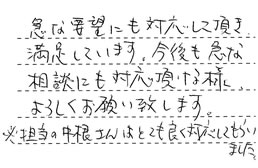 急な要望にも対応して頂き
満足しています。今後も急な
相談にも対応頂ける様、
よろしくお願い致します。
※担当の中根さんはとても良く対応してもらい
ました。